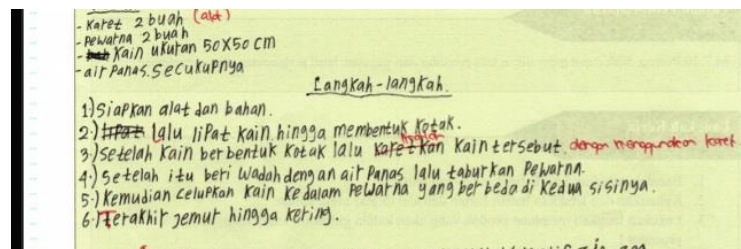 - Karet 2 buah (alat)
- Pewarna 2 buah
- Kain ukuran 50x50 cm
- air Panas secukupnya
Langkah-langkah.
1.) Siapkan alat dan bahan.
2.) lalu lipat kain hingga membentuk kotak.
3.) Setelah kain berbentuk kotak lalu karetkan kain tersebut dengan menggunakan karet.
4.) Setelah itu beri wadah dengan air Panas lalu taburkan Pewarna.
5.) Kemudian celupkan kain kedalam Pewarna yang berbeda di kedua sisinya.
6.) Terakhir jemur hingga kering.